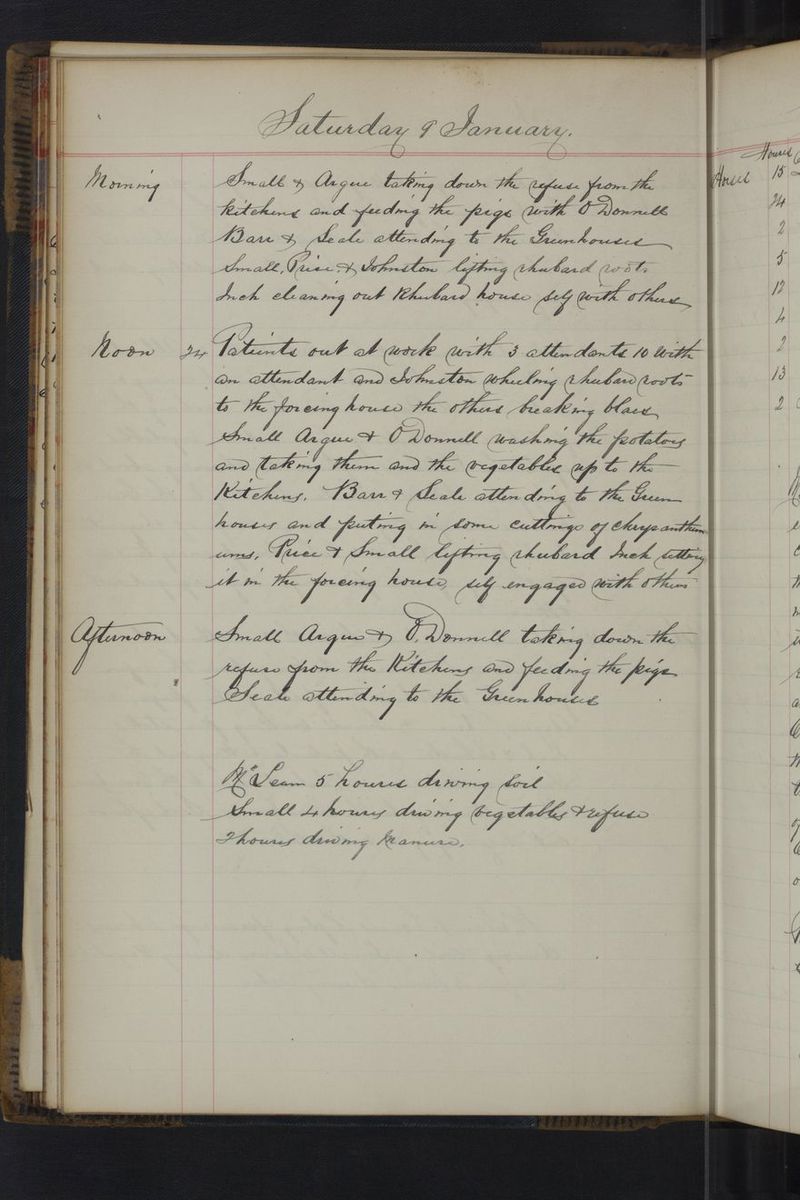 Saturday 9 January.
Morning Small & Argue taking down the refuse from the
kitchens and feeding the pigs with O Donnell
Barr & Seale attending to the Greenhouses
Small, Price & Johnston lifting rhubard roots
Inch cleaning out Rhubard house self with others
Noon 24 Patients out at work with 3 attendants 10 with
an attendant and Johnston wheeling rhubard roots
to the forceing house the others breaking blaes
Small Argue & O Donnell washing the potatoes
and taking them and the vegetables up to the
Kitchens. Barr & Seale attending to the Green
houses and puting in some cuttings of chrysanthem
ums, Price & Small lifting rhubard Inch setting
it in the forcing house, self engaged with others
Afternoon Small Argue & O, Donnell taking down the
refuse from the Kitchens and feeding the pigs
Seale attending to the Greenhouses
5 houres driving soil
Small 4 houres driving vegetables & refuse
2 houres driving manure.
Houres
Horses 15
24
2
5
12
4
2
13
2